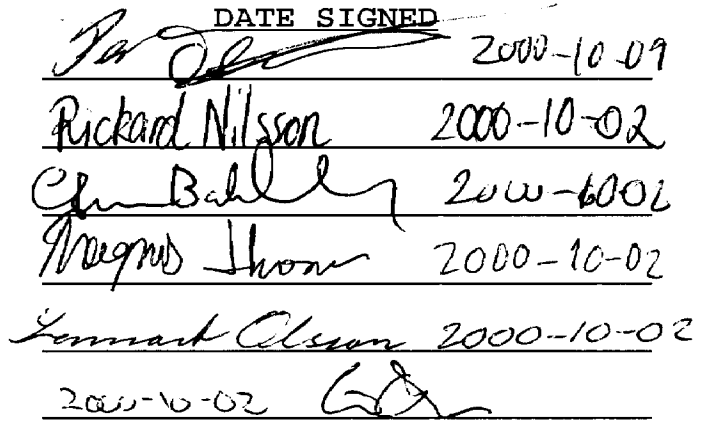 DATE SIGNED
Per 2000-10-09
Rickard Nilsson 2000-10-02
2000-10-02
Magnus 2000-10-02
Lennart Olsson 2000-10-02
2000-10-02